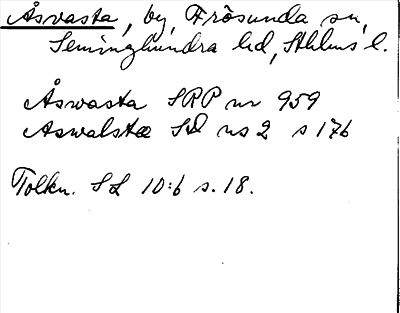 Åsvasta, by, Frösunda sn,
Seminghundra hd, Sthlms l.
Åswasta SRP nr 959
Aswalsta SD ns 2 s 176
Tolkn. SL 10:6 s. 18.